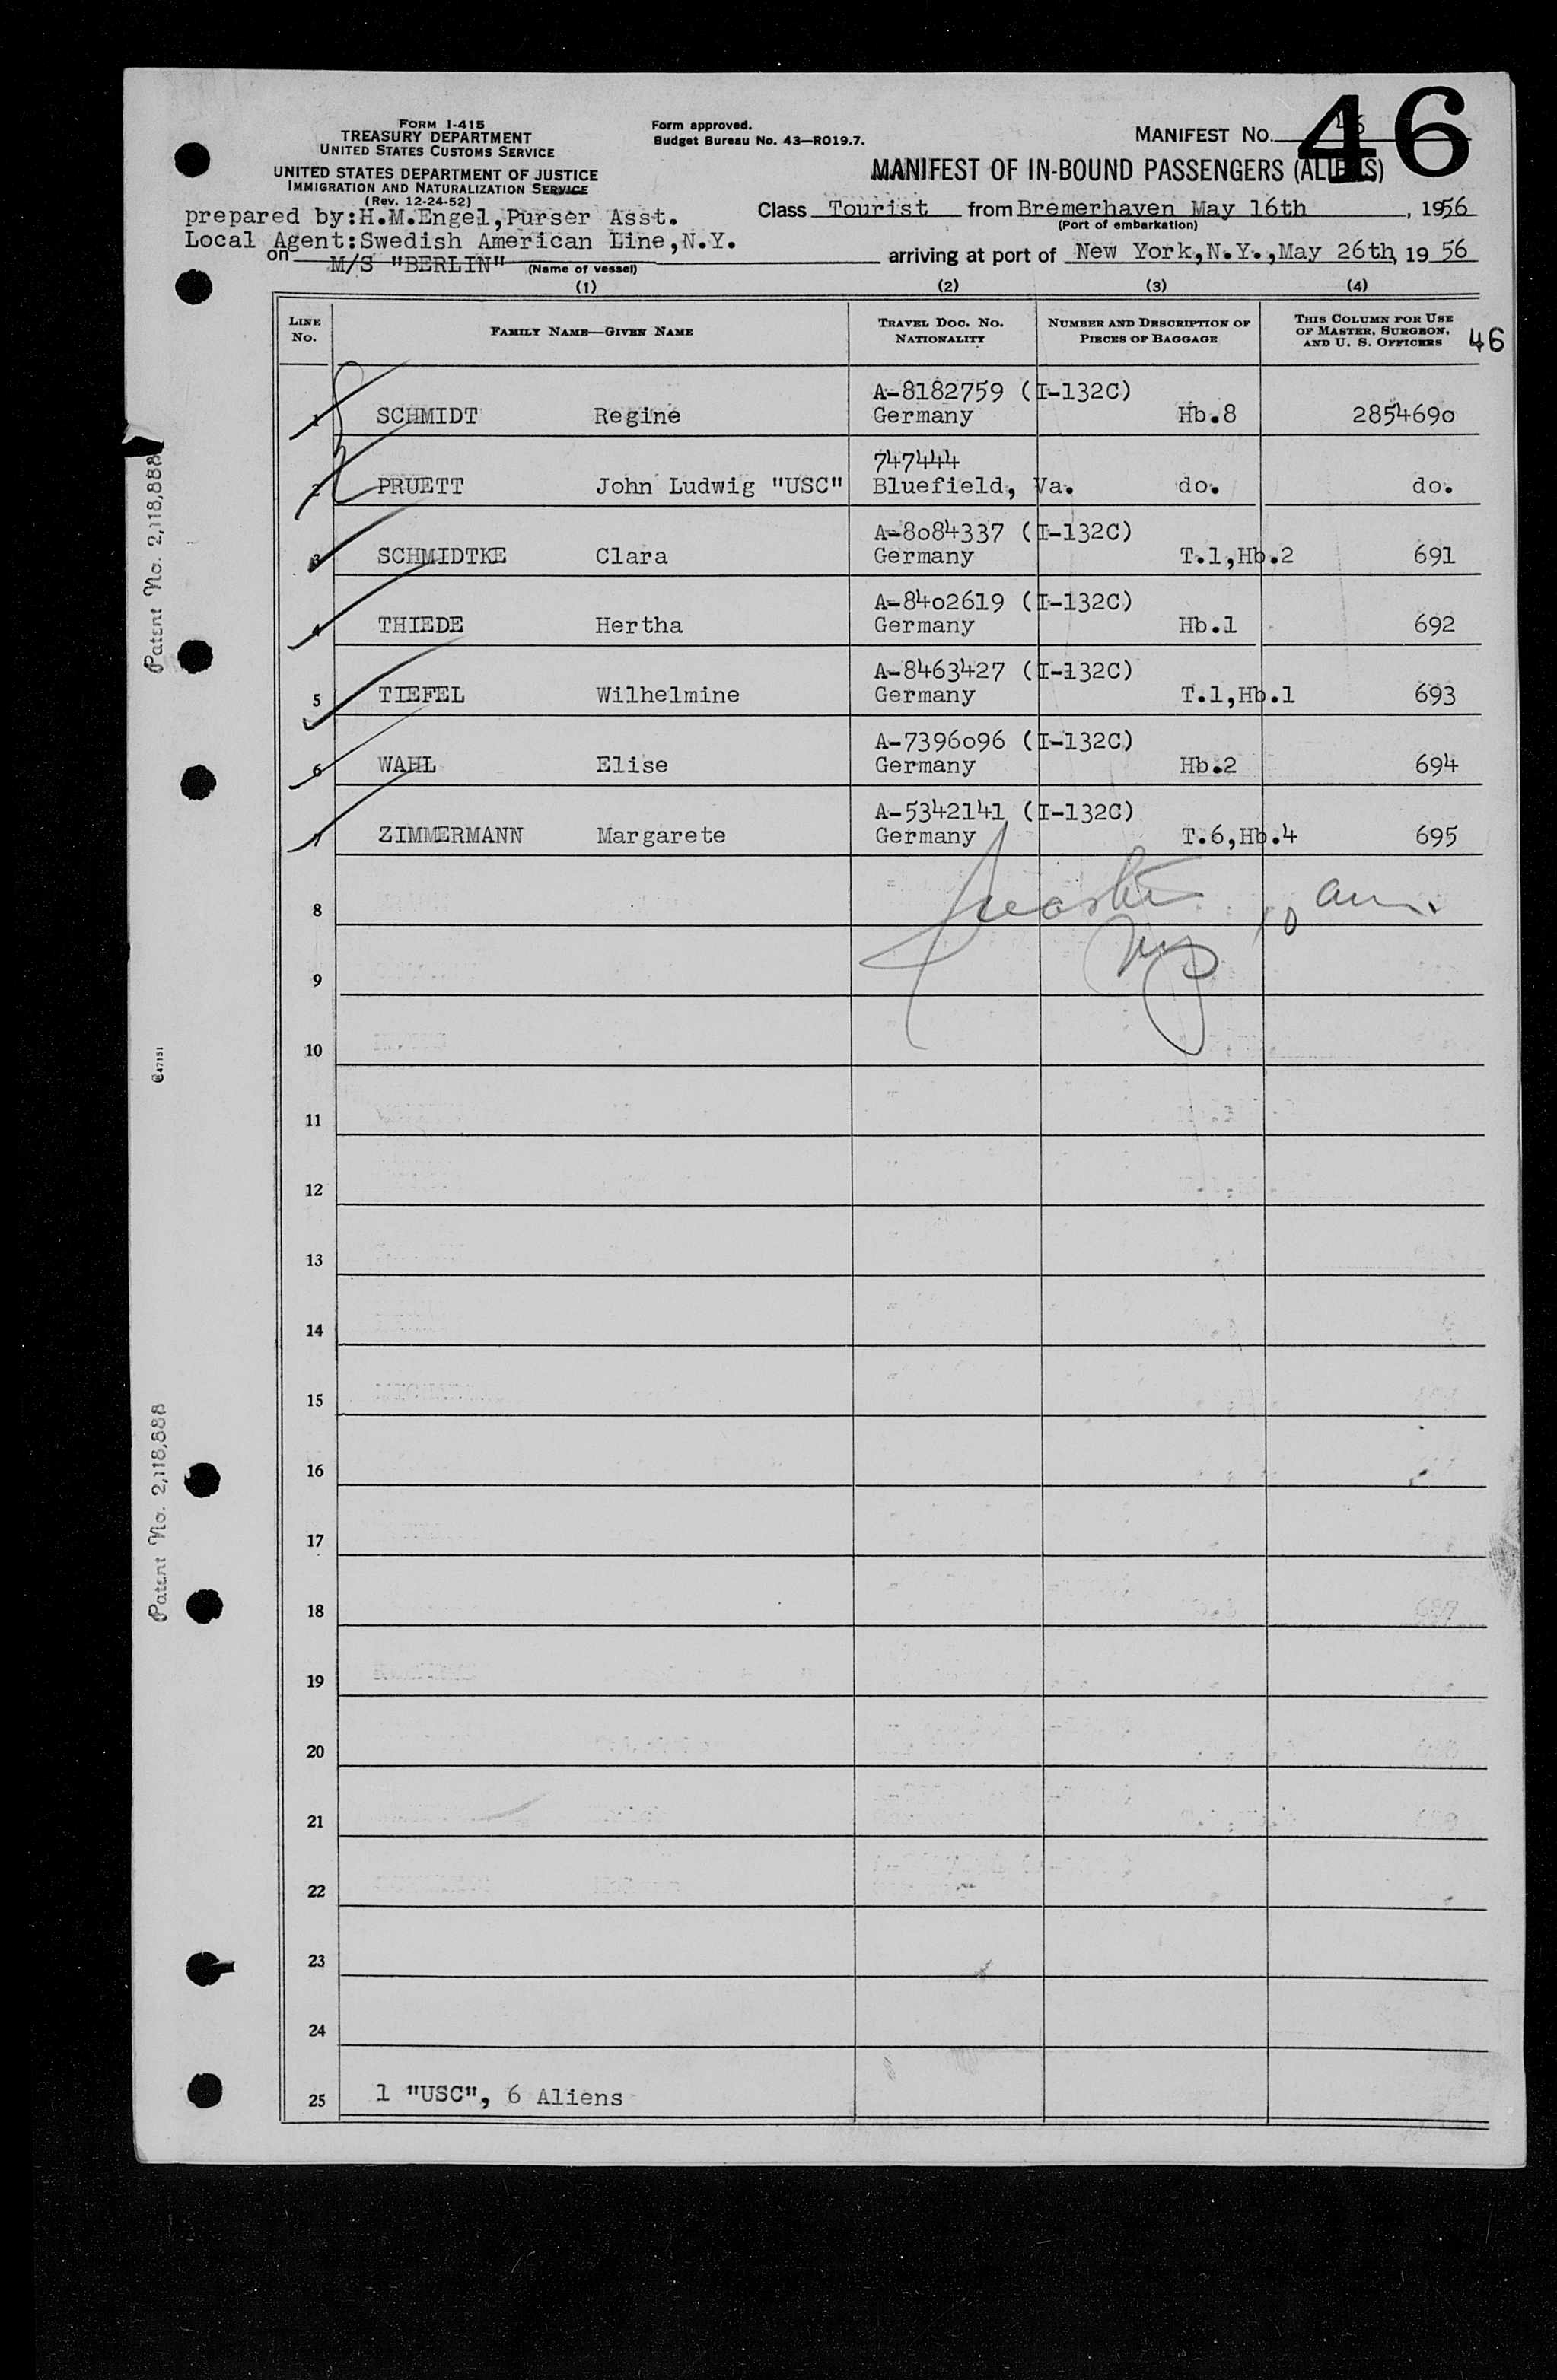 46
FORM I-415
TREASURY DEPARTMENT
UNITED STATES CUSTOMS SERVICE
UNITED STATES DEPARTMENT OF JUSTICE
IMMIGRATION AND NATURALIZATION SERVICE
(Rev. 12-24-52)
Form approved.
Budget Bureau No. 43—RO19.7.
MANIFEST NO. 46
MANIFEST OF IN-BOUND PASSENGERS (ALIENS)
prepared by:H.M.Engel,Purser Asst.
Class Tourist from Bremerhaven May 16th, 1956
(Port of embarkation)
Local Agent:Swedish American Line,N.Y.
on M/S "BERLIN" (Name of vessel)
arriving at port of New York,N.Y.,May 26th, 1956
(1) (2) (3) (4)
LINE NO. FAMILY NAME—GIVEN NAME TRAVEL DOC. NO. NATIONALITY NUMBER AND DESCRIPTION OF PIECES OF BAGGAGE THIS COLUMN FOR USE OF MASTER, SURGEON, AND U. S. OFFICERS 46
A-8182759 (I-132C)
1 SCHMIDT Regine Germany Hb.8 2854690
747444
2 PRUETT John Ludwig "USC" Bluefield, Va. do. do.
A-8084337 (I-132C)
3 SCHMIDTKE Clara Germany T.1,Hb.2 691
A-8402619 (I-132C)
4 THIEDE Hertha Germany Hb.1 692
A-8463427 (I-132C)
5 TIEFEL Wilhelmine Germany T.1,Hb.1 693
A-7396096 (I-132C)
6 WAHL Elise Germany Hb.2 694
A-5342141 (I-132C)
7 ZIMMERMANN Margarete Germany T.6,Hb.4 695
8
9
10
11
12
13
14
15
16
17
18
19
20
21
22
23
24
25 1 "USC", 6 Aliens
Patent No. 2,118,888
C47151
Patent No. 2,118,888